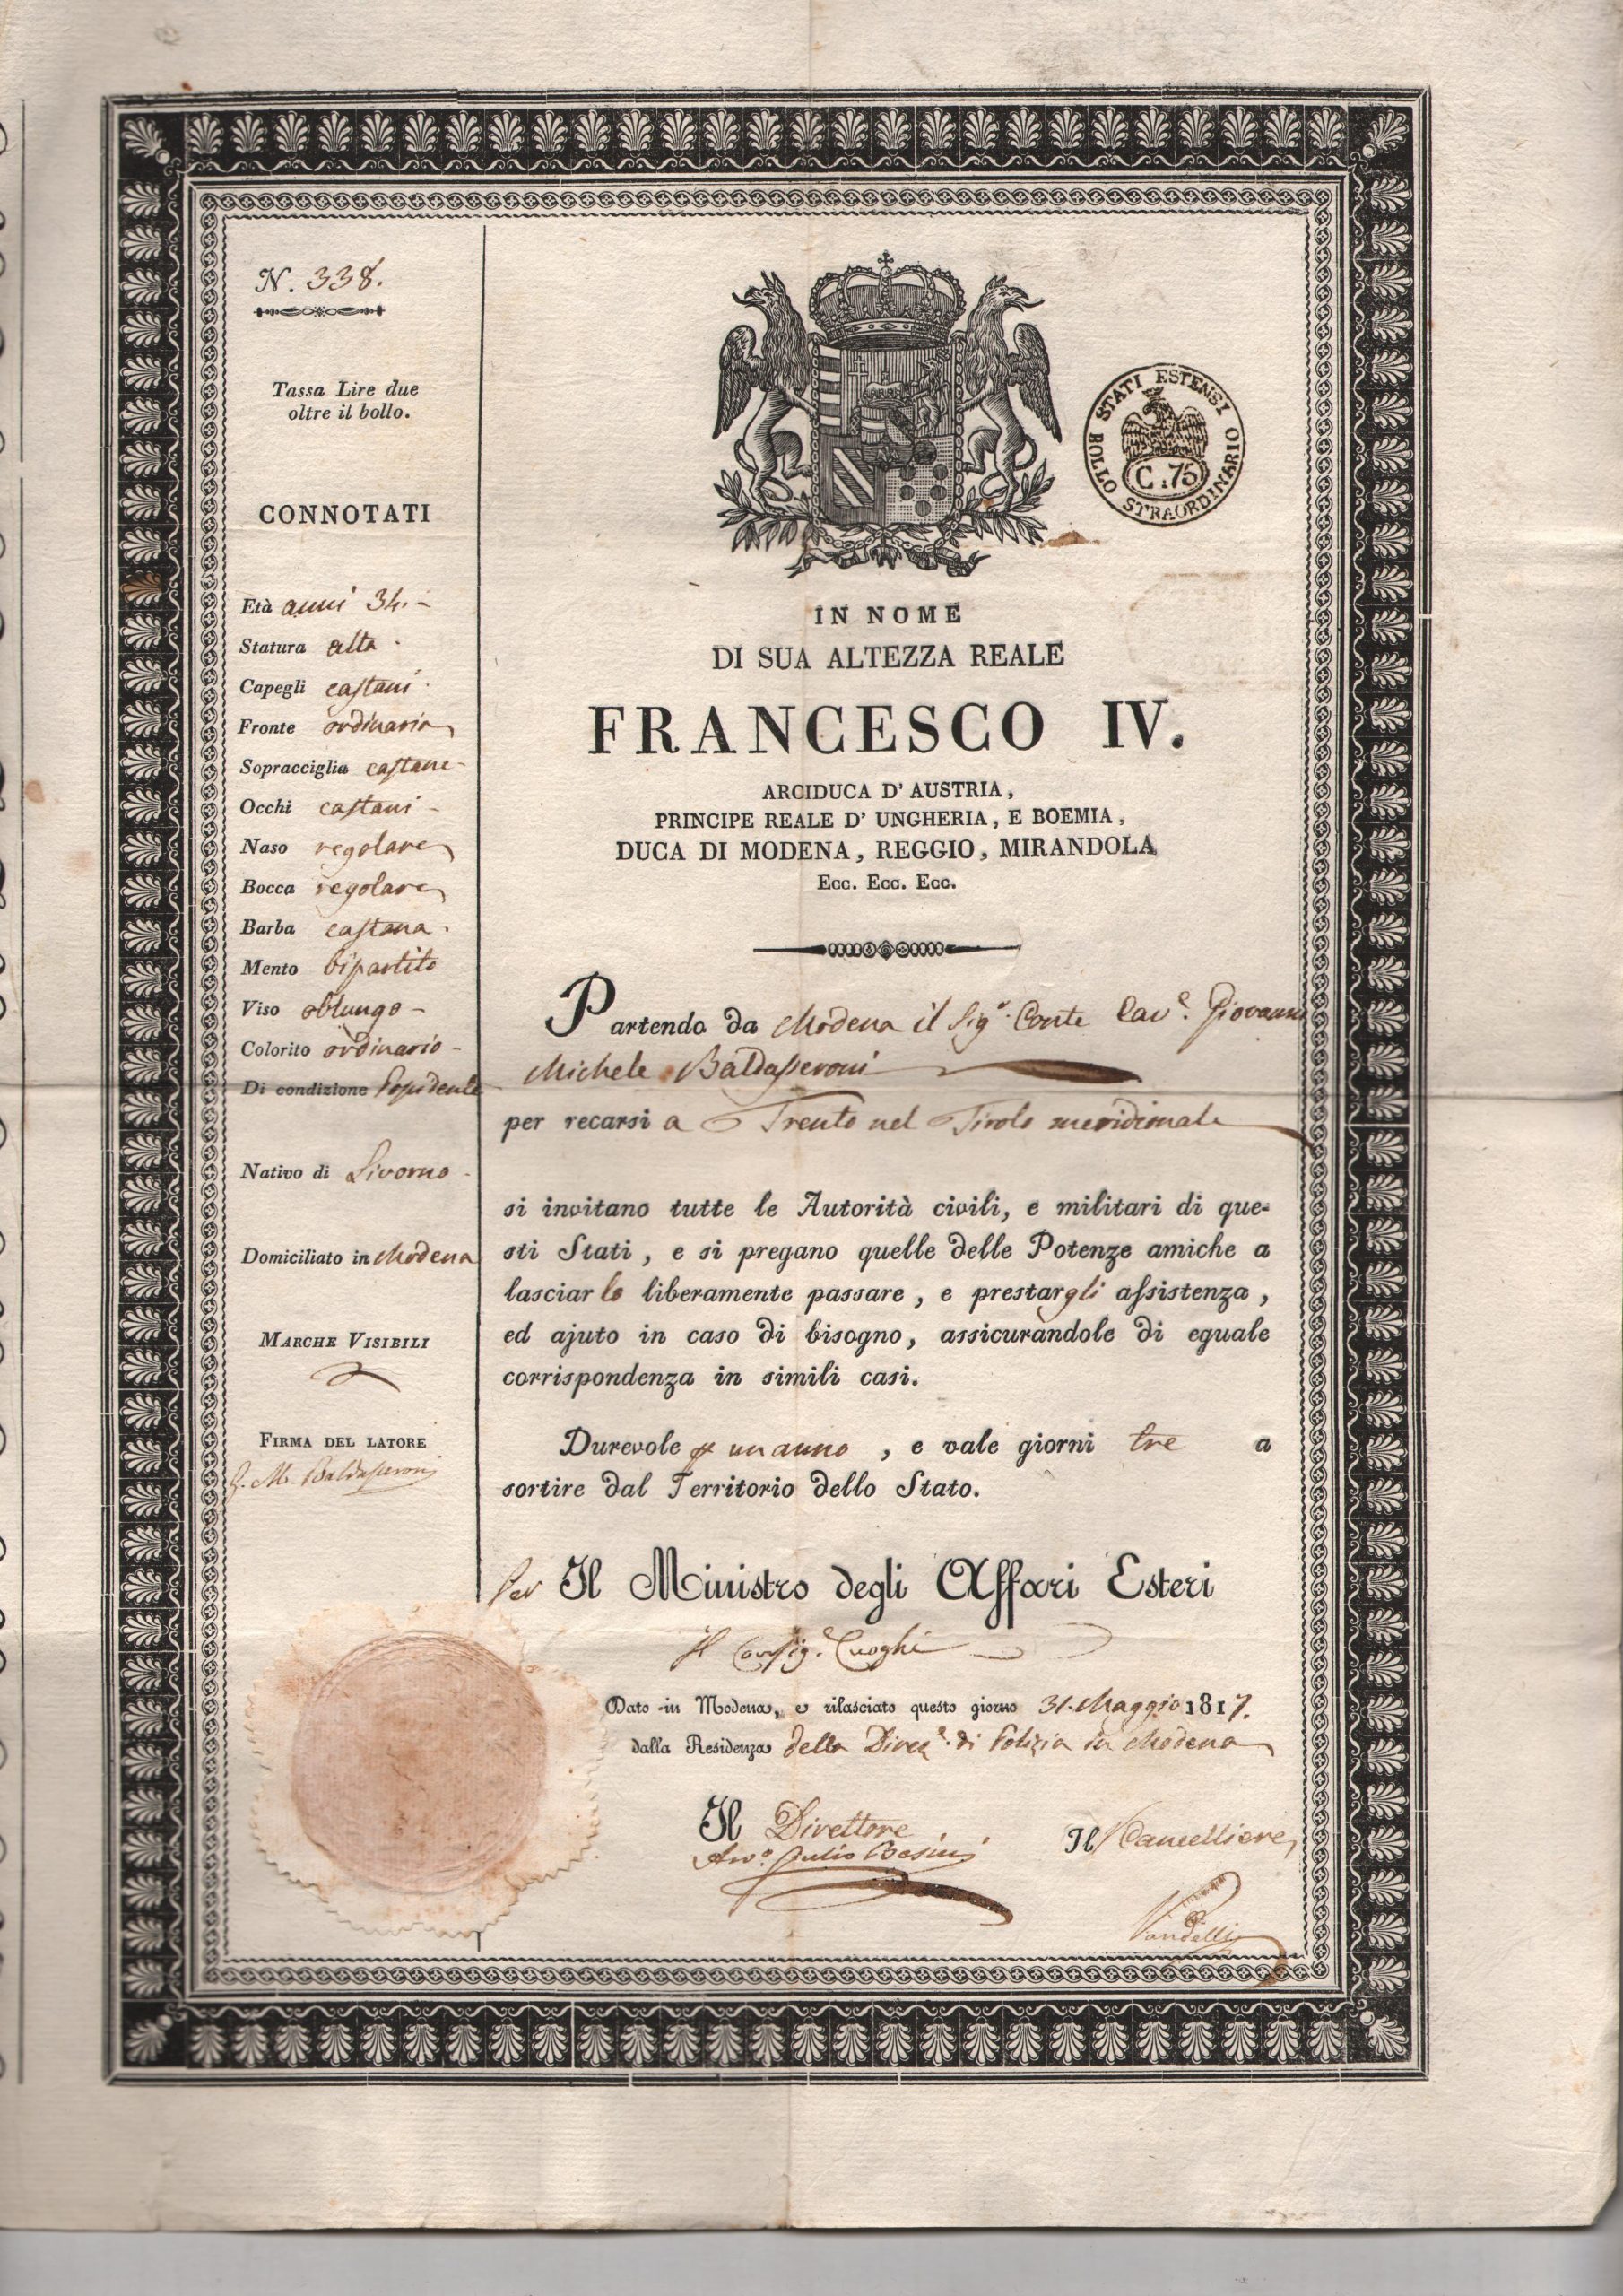 N. 338.
Tassa Lire due
oltre il bollo.
CONNOTATI
Età anni 34. -
Statura alta.
Capegli castani.
Fronte ordinaria
Sopracciglia castane -
Occhi castani -
Naso regolare
Bocca regolare
Barba castana.
Mento bipartito
Viso oblungo -
Colorito ordinario -
Di condizione Possidente
Nativo di Livorno -
Domiciliato in Modena
MARCHE VISIBILI
FIRMA DEL LATORE
G. M. Baldasseroni
STATI ESTENSI
C. 75
BOLLO STRAORDINARIO
IN NOME
DI SUA ALTEZZA REALE
FRANCESCO IV.
ARCIDUCA D' AUSTRIA,
PRINCIPE REALE D' UNGHERIA, E BOEMIA,
DUCA DI MODENA, REGGIO, MIRANDOLA
Ecc. Ecc. Ecc.
Partendo da Modena il Sig.r Conte Cav.e Giovanni
Michele Baldasseroni
per recarsi a Trento nel Tirolo meridionale
si invitano tutte le Autorità civili, e militari di que-
sti Stati, e si pregano quelle delle Potenze amiche a
lasciarlo liberamente passare, e prestargli assistenza,
ed ajuto in caso di bisogno, assicurandole di eguale
corrispondenza in simili casi.
Durevole p un anno, e vale giorni tre a
sortire dal Territorio dello Stato.
Per Il Ministro degli Affari Esteri
Il Consig.e Cuoghi
Dato in Modena, e rilasciato questo giorno 31. Maggio 1817.
dalla Residenza della Direz.e di Polizia in Modena
Il Direttore
Avv.o Giulio Besini
Il Cancelliere
Vandelli